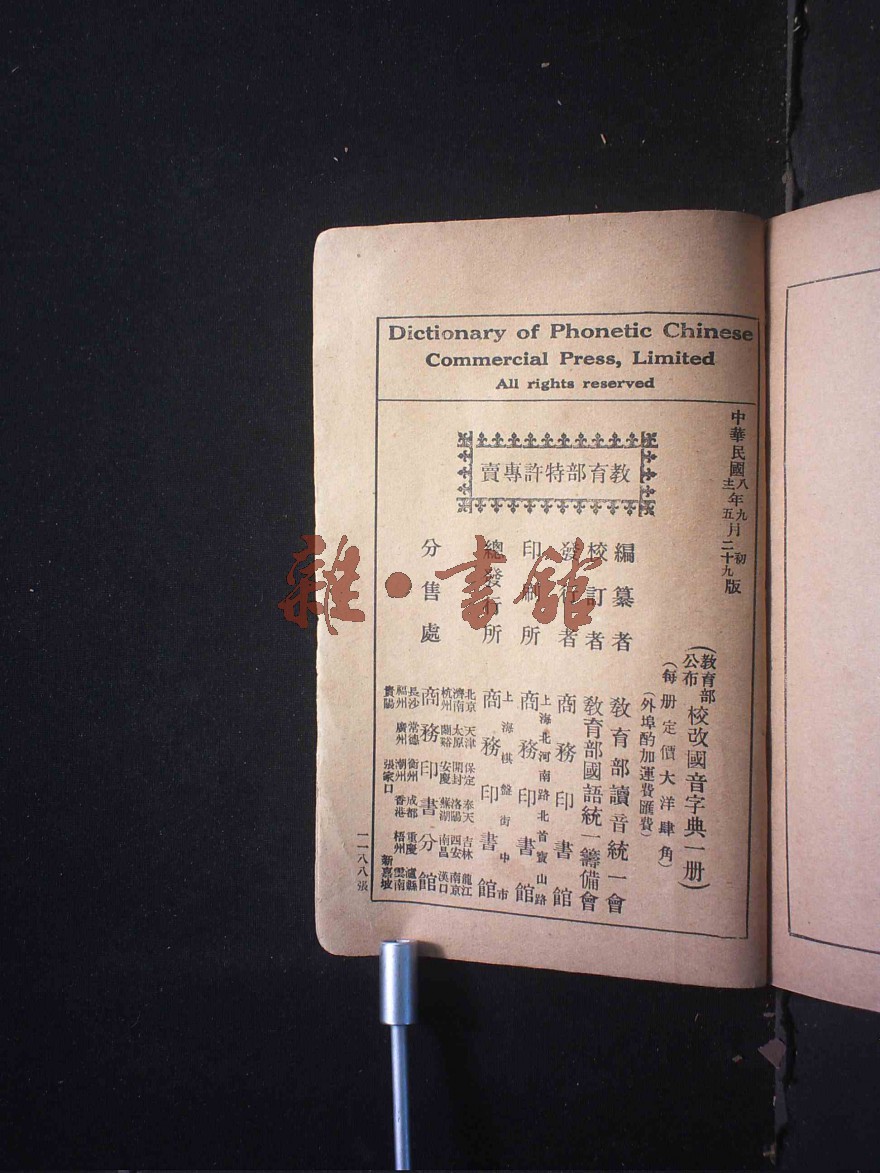 Dictionary of Phonetic Chinese
Commercial Press, Limited
All rights reserved
教育部特許專賣
中華民國八年九月初版
五月二十九版
(教育部公布校改國音字典一册)
(每册定價大洋肆角)
(外埠酌加運費匯費)
編纂者 教育部讀音統一會
校訂者 教育部國語統一籌備會
發行者 商務印書館
印刷所 上海北河南路北首寶山路 商務印書館
總發行所 上海棋盤街中市 商務印書館
分售處 商務印書分館
北京 天津 保定 奉天 吉林 龍江
濟南 太原 開封 洛陽 西安 南京
杭州 蘭谿 安慶 蕪湖 南昌 漢口
長沙 常德 衡州 成都 重慶 瀘縣
福州 廣州 潮州 香港 梧州 雲南
貴陽 張家口 新嘉坡
一一八八張
雜·書館